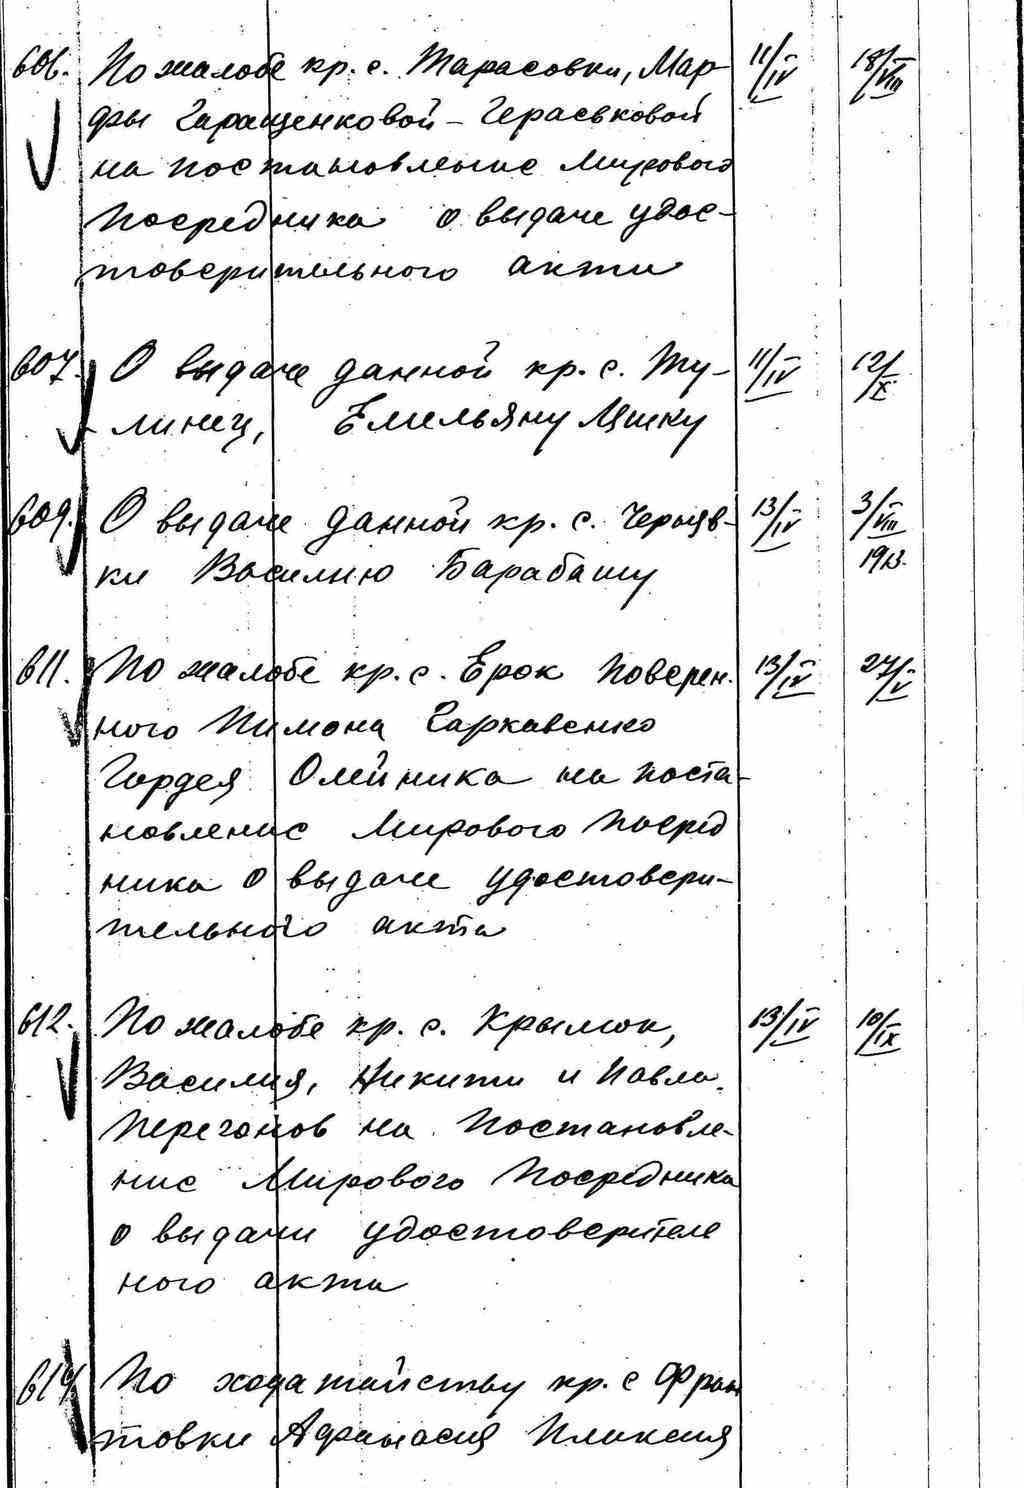 606. По жалобе кр. с. Тарасовки, Мар- 11/IV 18/VIII
фы Гаращенковой - Гераськовой
на постановление Мирового
Посредника о выдаче удос-
товерительного акта
607. О выдаче данной кр. с. Ту- 11/IV 12/X
линец, Емельяну Цику
609. О выдаче данной кр. с. Черняв- 13/IV 3/VIII
ки Василию Барабашу 1913.
611. По жалобе кр. с. Ерок Поверен- 13/IV 27/V
ного Пимона Гаркавенко
Гордея Олейника на поста-
новление Мирового Посред
ника о выдаче удостовери-
тельного акта
612. По жалобе кр. с. Крымок, 13/IV 10/IX
Василия, Никиты и Павла
Перегонов на Постановле-
ние Мирового Посредника
о выдачи удостоверителе
ного акта
По ходатайству кр. с Фран
товки Афанасия